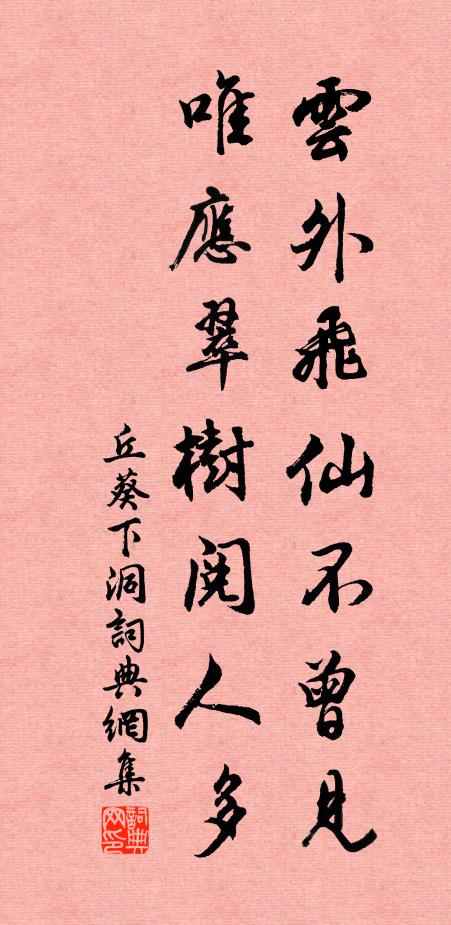 雲外飛仙不曾見
唯應翠樹閱人多
丘葵下洞詞典網集
詞典網印